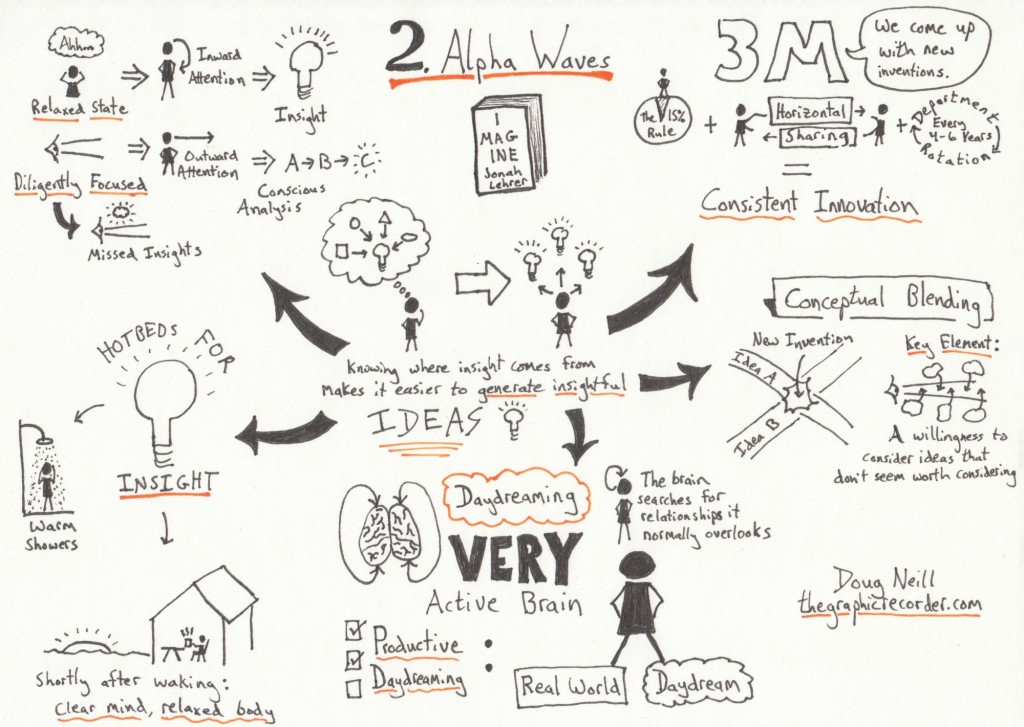 2. Alpha Waves
I
MAG
INE
Jonah
Lehrer
Ahhhh
Relaxed State
Inward
Attention
Insight
Diligently Focused
Outward
Attention
A → B → C
Conscious
Analysis
Missed Insights
3M
We come up
with new
inventions.
The 15%
Rule
+
Horizontal
Sharing
+
Department
Every
4-6 Years
Rotation
=
Consistent Innovation
Knowing where insight comes from
makes it easier to generate insightful
IDEAS
Conceptual Blending
New Invention
Idea A
Idea B
Key Element:
A willingness to
consider ideas that
don't seem worth considering
HOTBEDS FOR
INSIGHT
Warm
Showers
Shortly after waking:
Clear mind, relaxed body
Daydreaming
VERY
Active Brain
The brain
searches for
relationships it
normally overlooks
Productive
Daydreaming
:
Real World
Daydream
Doug Neill
thegraphicrecorder.com